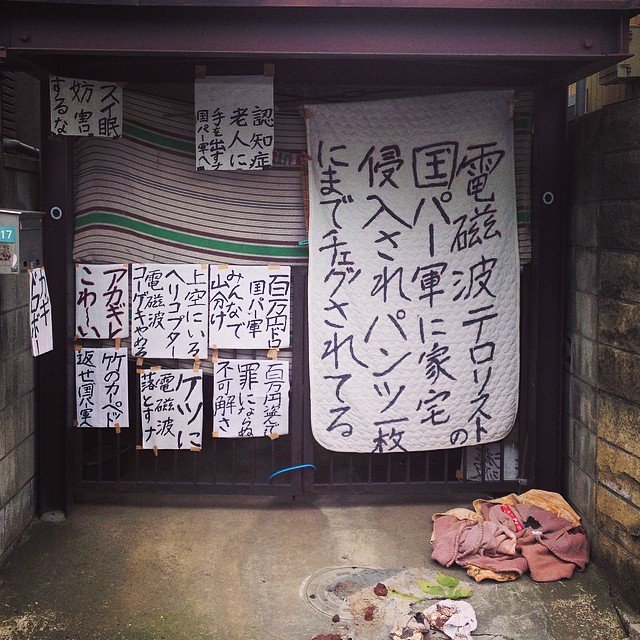 スイ眠
妨害
するな
認知症
老人に
手を出すナ
国パー軍へ
電磁波テロリストの
国パー軍に家宅
侵入されパンツ一枚
にまでチェグされてる
百万円ドロ
国パー軍
みんなで
山分け
上空にいる
ヘリコプター
電磁波
コーゲキやめろ
アカギレ
こわ〜い
百万円盗んで
罪にならぬ
不可解さ
ケツに
電磁波
落とすナ
竹のカーペッド
返せ国パ軍
17